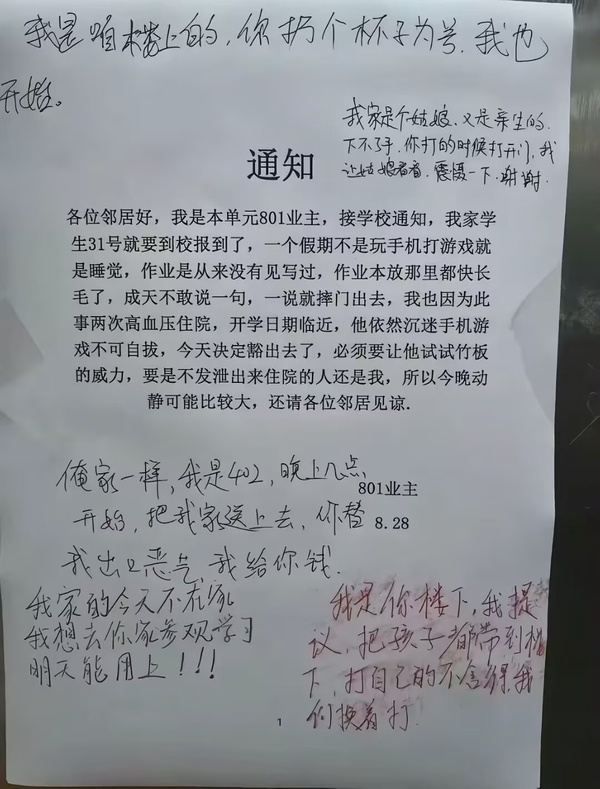 我是咱楼上的，你扔个杯子为号，我也
开始。
我家是个姑娘，又是亲生的，
下不了手，你打的时候打开门，我
让姑娘看看，震慑一下，谢谢。
通知
各位邻居好，我是本单元801业主，接学校通知，我家学
生31号就要到校报到了，一个假期不是玩手机打游戏就
是睡觉，作业是从来没有见写过，作业本放那里都快长
毛了，成天不敢说一句，一说就摔门出去，我也因为此
事两次高血压住院，开学日期临近，他依然沉迷手机游
戏不可自拔，今天决定豁出去了，必须要让他试试竹板
的威力，要是不发泄出来住院的人还是我，所以今晚动
静可能比较大，还请各位邻居见谅.
801业主
8.28
俺家一样，我是402，晚上几点
开始，把我家送上去，你替
我出口恶气，我给你钱.
我家的今天不在家
我想去你家参观学习
明天能用上！！！
我是你楼下，我提
议，把孩子都带到楼
下，打自己的不舍得，我
们换着打.
1